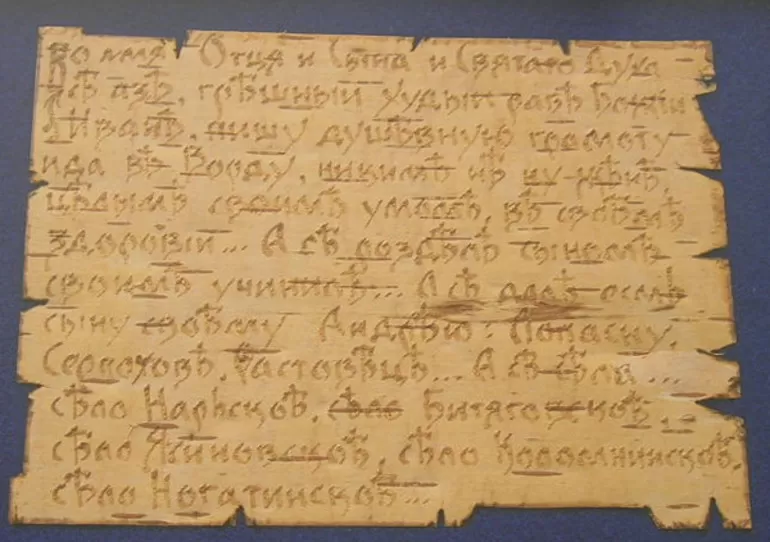 Во имѧ Отця и Сына и Святаго Духа
Сѣ азъ, грѣшный худый рабъ Божии
Иванъ, пишу душѣвную грамоту
ида въ Ворду, никимъ нѣ ну-жѣнъ,
цѣлымъ своимъ умомъ, въ своѣмъ
здоровїи... А сѣ роздѣлъ сыномъ
своимъ учинилъ... А сѣ далъ есмь
сыну своѣму Андрѣю: Лопасну,
Серпоховъ, Растовѣцъ... А сѣ сѣла...
сѣло Нарьскоѣ, сѣло Битягоѣ
сѣло Ясиновскоѣ, сѣло Коломнинскоѣ,
сѣло Ногатинскоѣ...